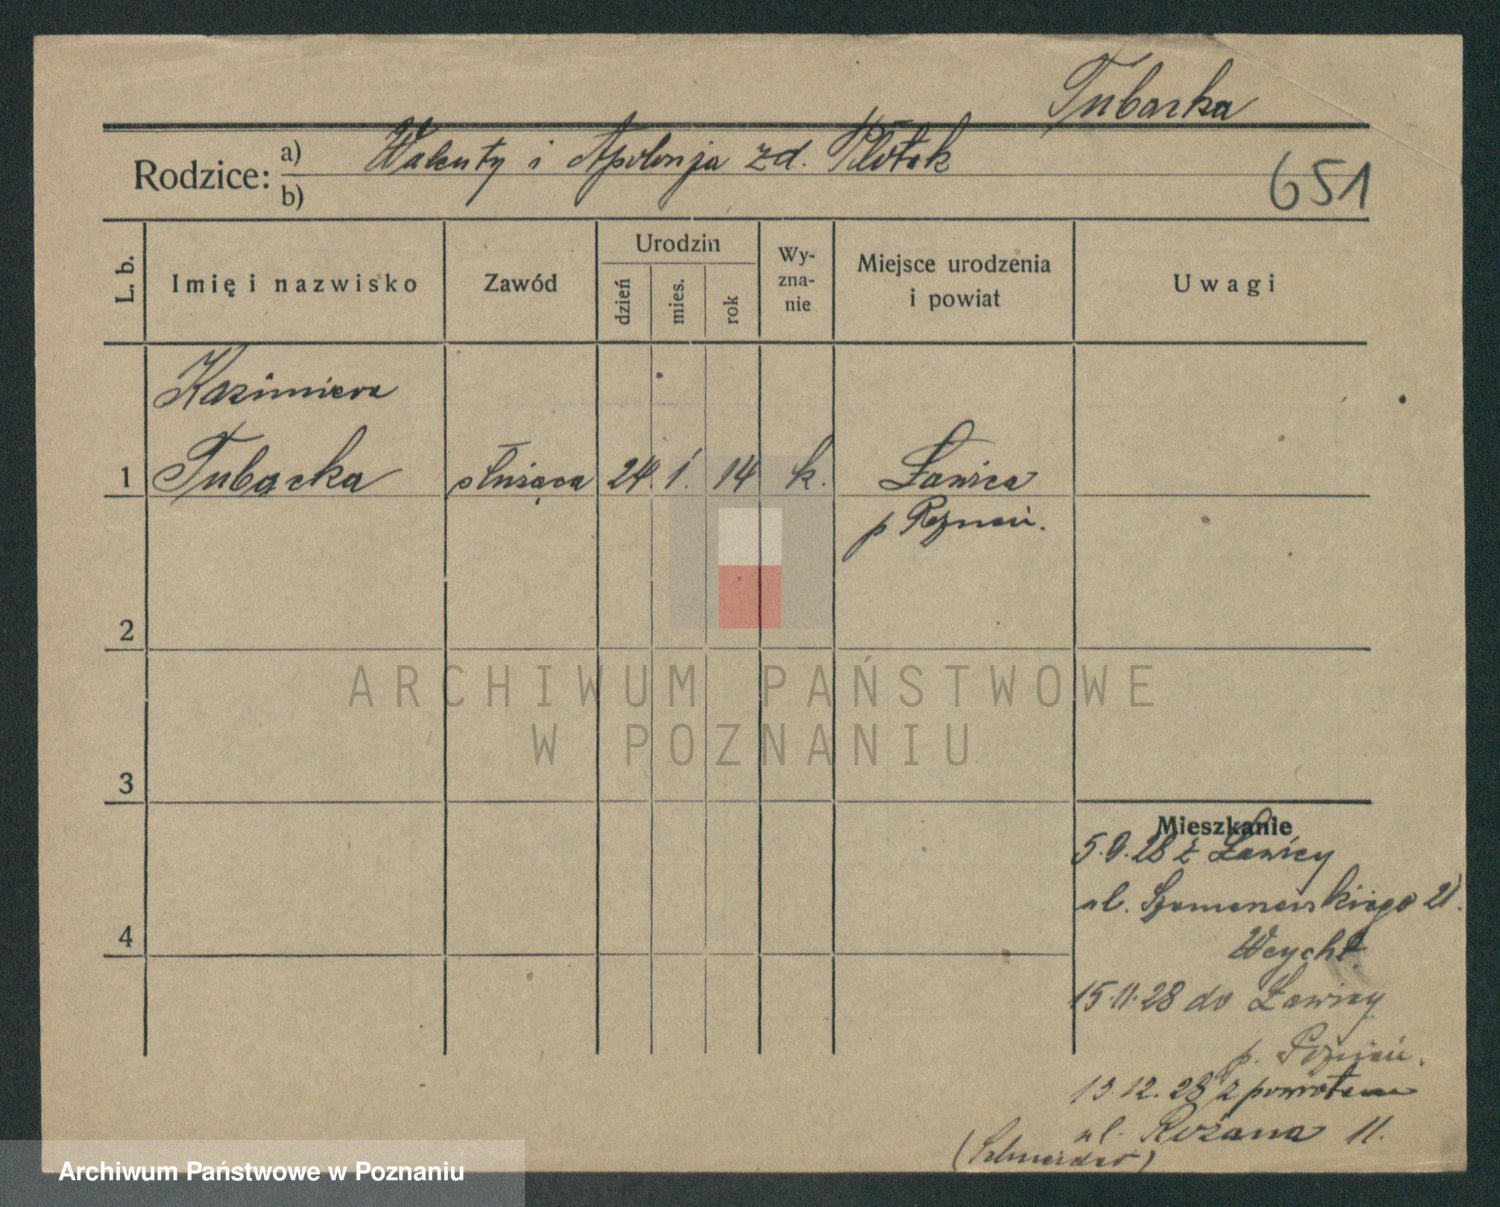 Tubacka
Rodzice:
a) Walenty i Apolonja zd. Płotek
b)
651
L. b.
Imię i nazwisko
Zawód
Urodzin
dzień
mies.
rok
Wy-
zna-
nie
Miejsce urodzenia
i powiat
Uwagi
Kazimiera
1 Tubacka służąca 24 1. 14 k. Ławica
p Poznań.
2
3
4
ARCHIWUM PAŃSTWOWE
W POZNANIU
Mieszkanie
5.9.28 z Ławicy
ul. 21.
15.11.28 do Ławicy
p. Poznań.
13 12. 28 z powrotem
ul. Różana 11.
(Schneider)
Archiwum Państwowe w Poznaniu